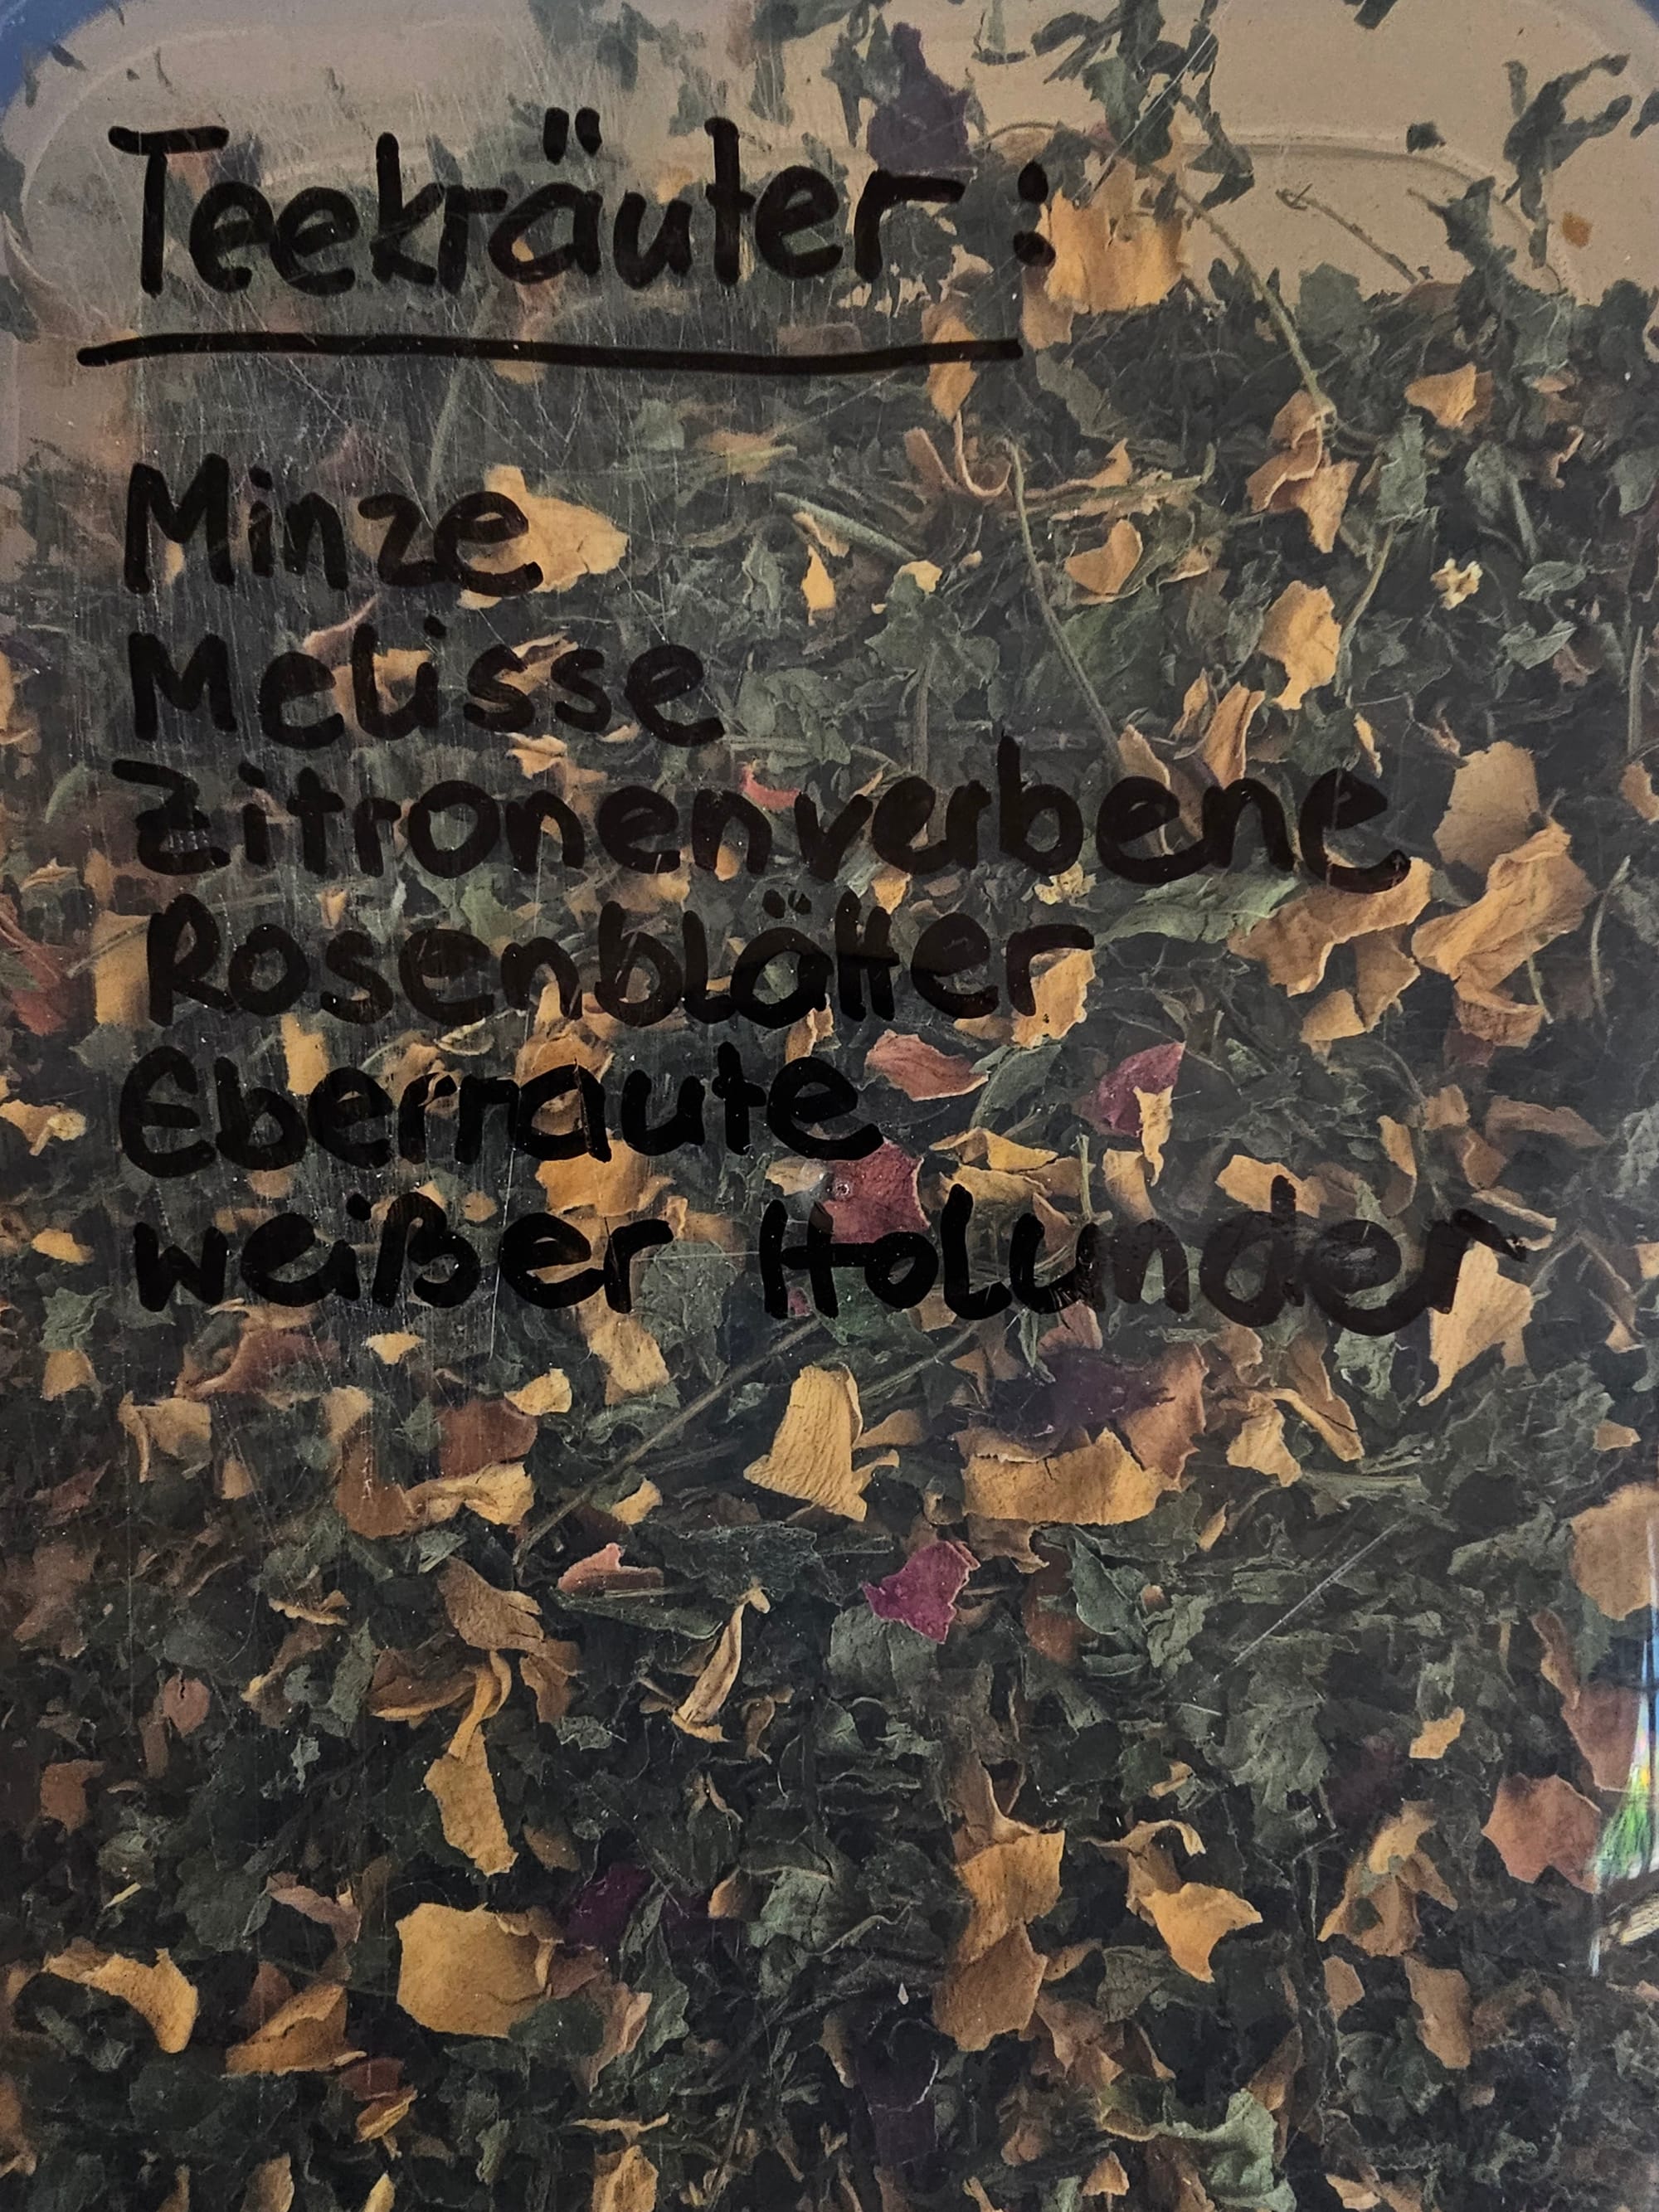 Teekräuter:
Minze
Melisse
Zitronenverbene
Rosenblätter
Eberraute
weißer Holunder